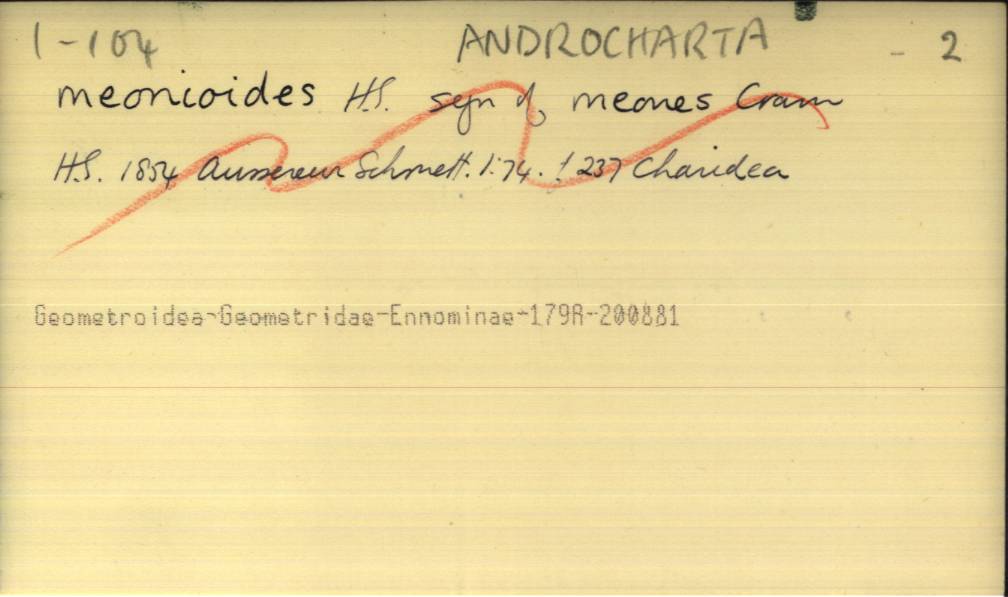 1-104 ANDROCHARTA - 2
meonioides H.S. syn of meones Cram
H.S. 1854 Aussereur Schmett. 1:74. f 237 Charidea
Geometroidea-Geometridae-Ennominae-179R-200881